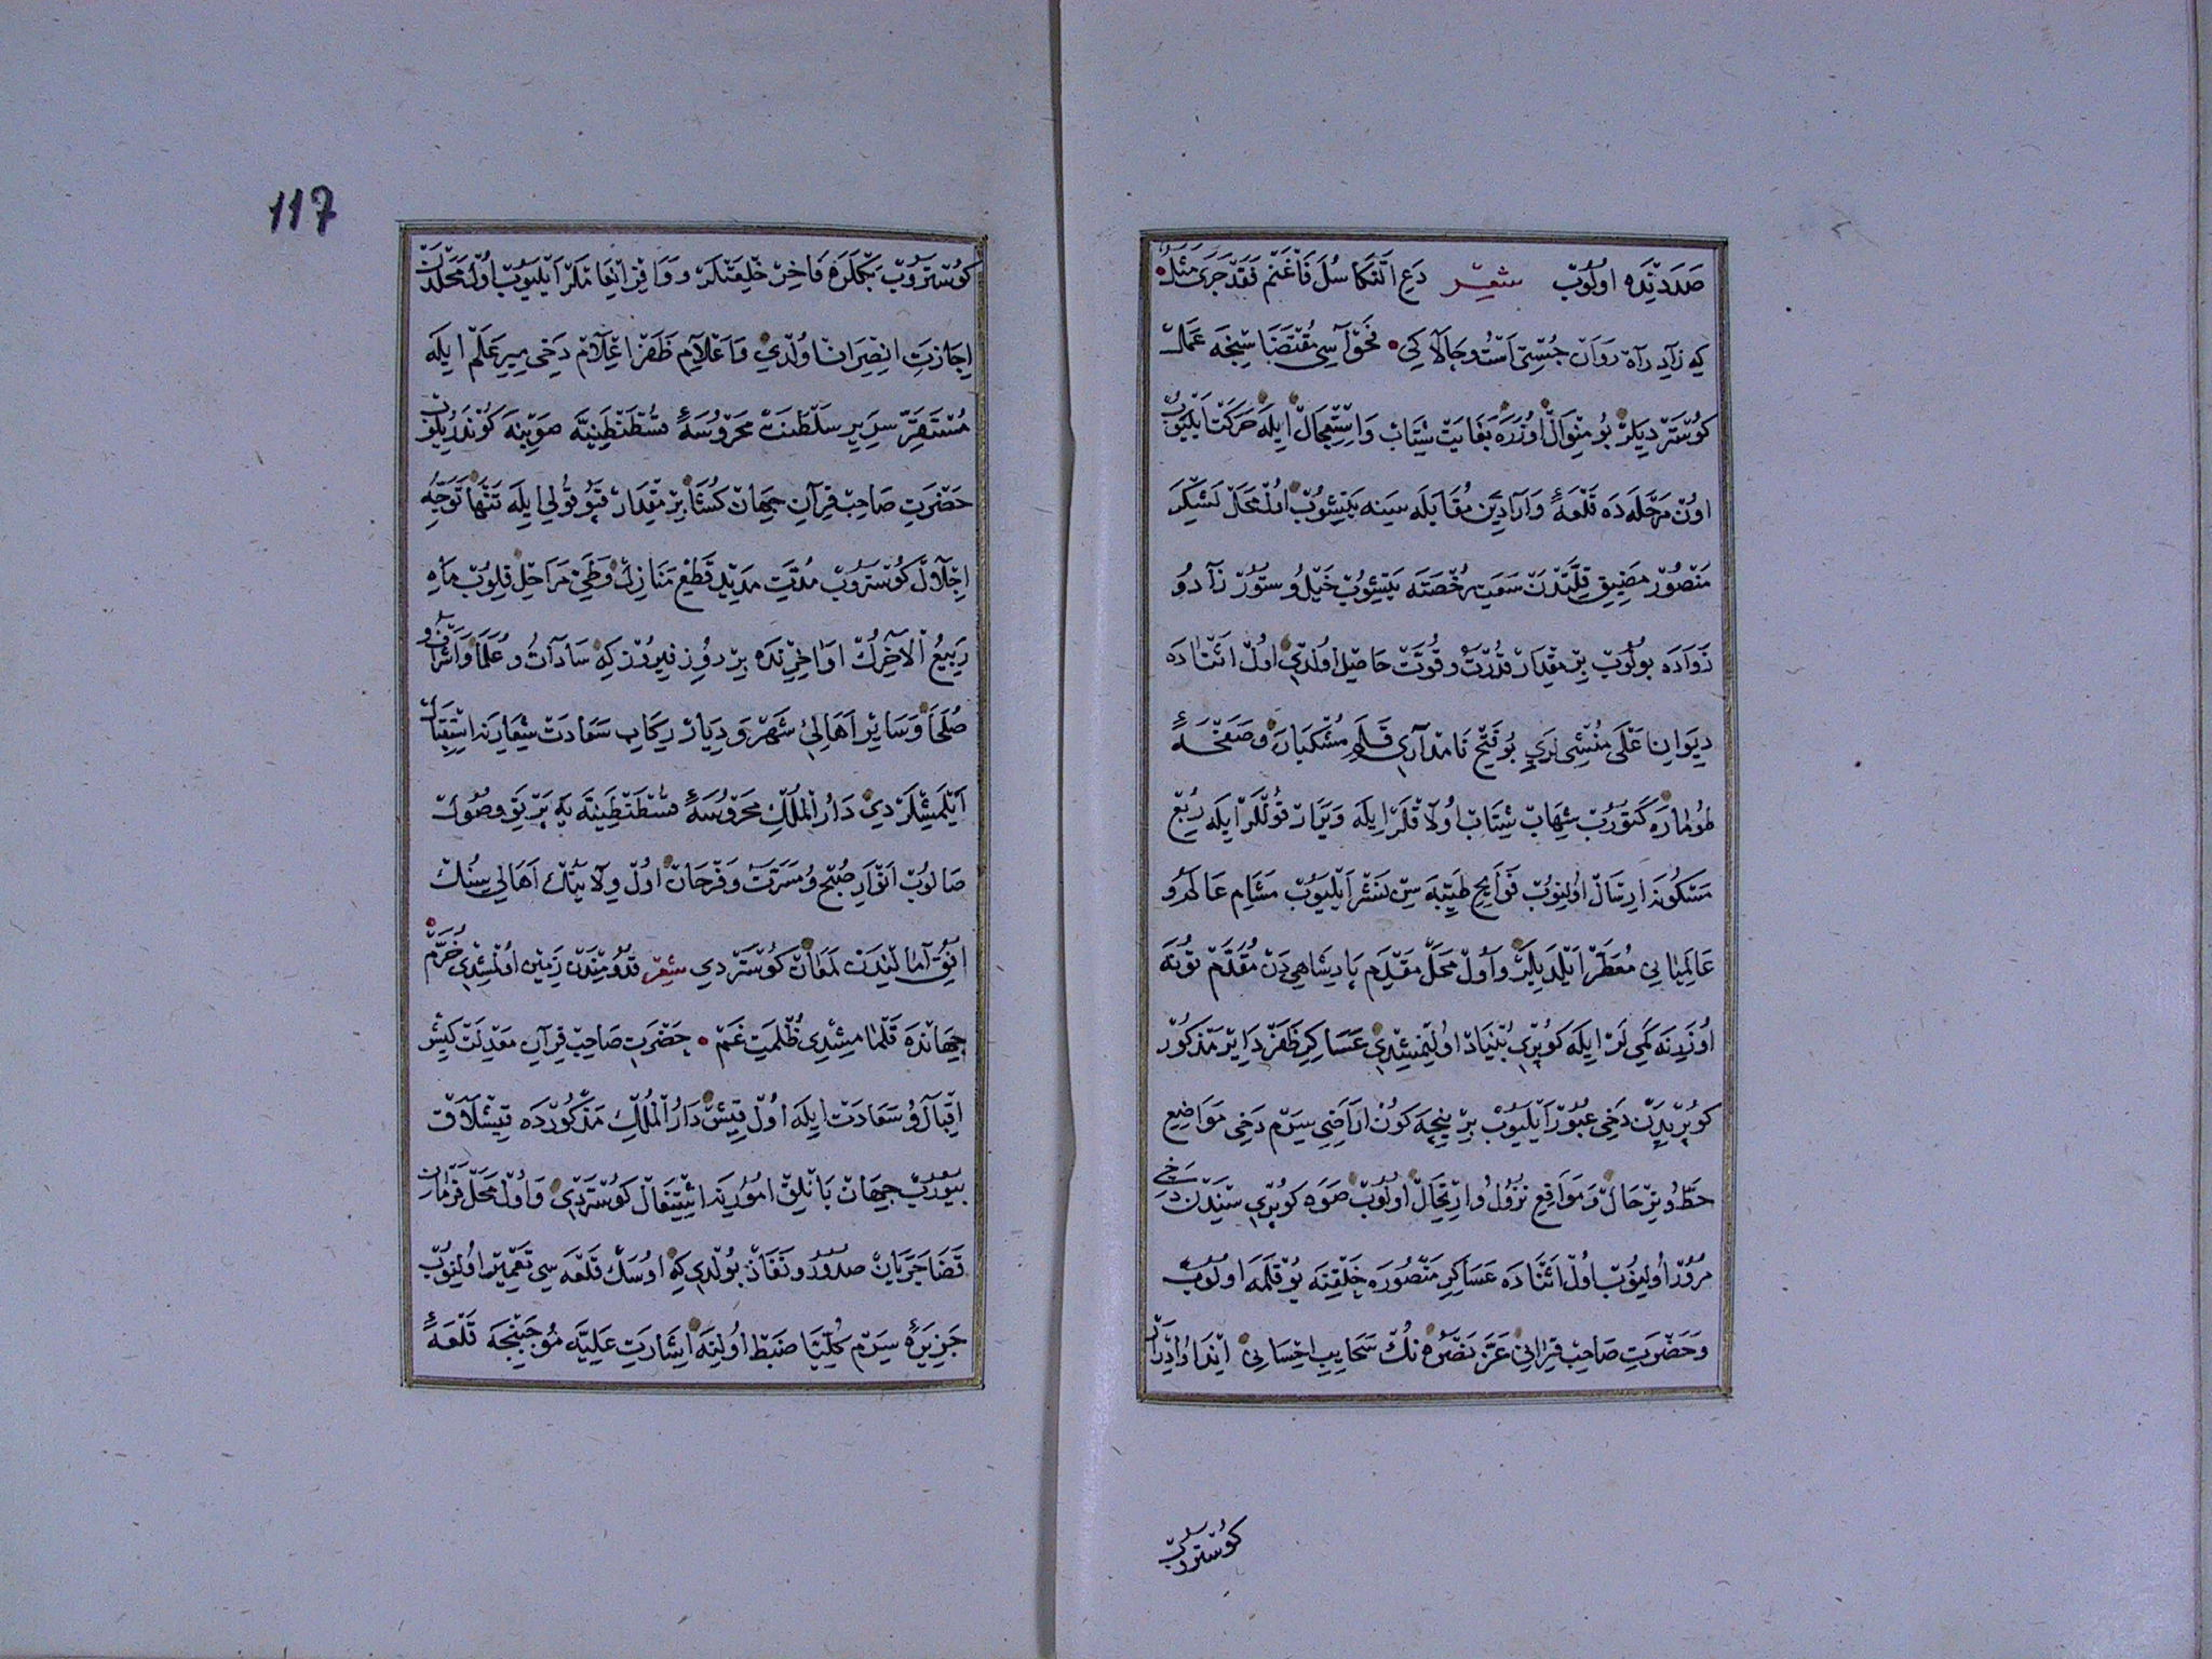 صَدَدِنْدَه اولُوبْ شعر دَعِ التَّكَاسُلَ فَاغْنَمْ فَقَدْ جَرَى مَثَلٌ
كه زادِ راه رَوَان جُسْتی اَسْتُ وچَالاكی فَحْواسی مُقْتَضَاسِنْجَه عَمَلْ
كُوسْتَرْدِیلَرْ بُو مِنْوَالْ اوُزَرَه بَغَایَتْ شِتَابْ وَاسْتِعْجَالْ اِیلَه حَرَكَتْ اَیْلَیُوبْ
اوُنْ مَرْحَلَه دَه قَلْعَهٔ وَارَادِیْن مُقَابَلَه سِینَه یَتِیشُوبْ اوُلْ مَحَلْ لَشْكَرِ
مَنْصُورْ مَضِیقِ قِلَّتْدَنْ سَعَتِ رُخْصَتَه یَتِیشُوبْ خَیْلُ وسُتُورْ زَادُ
زَوَادَه بُولُوبْ بِرْ مِقْدَارْ قُدْرَتْ وقُوَّتْ حَاصِلْ اوُلْدِی اوُلْ اَثْنَادَه
دِیوَانِ اَعْلَی مُنْشِیلَرِی بُو فَتْحِ نَامْدَارِی قَلَمِ مُشْكْبَارَه وصَفْحَهٔ
طُومَارَه كَتُورُبْ شِهَابْ شِتَابْ اوُلاقْلَرْ اِیلَه وَیَرَارْ قُولْلَرْ اِیلَه رُبْعِ
مَسْكُونَه اِرْسَالْ اوُلِنُوبْ فَوَایِحِ طَیِّبَه سِنْ نَشْرْ اَیْلَیُوبْ مَشَامِ عَالَمُ
عَالَمِیَانِی مُعَطَّرْ اَیْلَدِیلَرْ وَاوُلْ مَحَلْ مَقْدَمِ پَادِشَاهِی دَنْ مُقَدَّمْ تُونَه
اوُزَرِنَه كَمِی لَرْ اِیلَه كُوپْرِی بُنْیَادْ اوُلِنْمِشْدِی عَسَاكِرِ ظَفَرْ دَایِرْ مَذْكُورْ
كُوپْرِیدَنْ دَخِی عُبُورْ اَیْلَیُوبْ بِرْ نِیجَه كُونْ اَرَاضِیِ سِیرَمْ دَخِی مَوَاضِعِ
حَطُّ وتِرْحَالْ وَمَوَاقِعِ نُزُولُ وارْتِحَالْ اوُلُوبْ صَوَه كُوپْرِیسِنْدَنْ دَخِی
مُرُورْ اوُلِنُوبْ اوُلْ اَثْنَادَه عَسَاكِرِ مَنْصُورَه خَلْقِنَه یُوقْلَمَه اوُلُوبْ
وَحَضْرَتِ صَاحِبْ قِرَانِی عَزَّ نَصْرُه نُكْ سَحَایِبِ اِحْسَانِی اِدْرَارْ
كوستروب
117
كُوسْتَرُوبْ بَكْلَرَه فَاخِرْ خِلْعَتْلَرْ ووَافِرْ اِنْعَامْلَرْ اَیْلَیُوبْ اوُلْ مَحَلْدَنْ
اِجَازَتِ انْصِرَافْ اوُلْدِی وَاَعْلَامِ ظَفَرْ اِعْلَامْ دَخِی مِیرِ عَلَمْ اِیلَه
مُسْتَقَرِّ سَرِیرِ سَلْطَنَتْ مَحْرُوسَهٔ قُسْطَنْطِنِیَّه صَوْبِنَه كُونْدَرِیلُوبْ
حَضْرَتِ صَاحِبْ قِرَانِ جِهَانْ كُشَا بِرْ مِقْدَارْ قَپُو قُولِی اِیلَه تَنْهَا تَوَجُّهِ
اِجْلَالْ كُوسْتَرُوبْ مُدَّتِ مَدِیدْ قَطْعِ مَنَازِلْ وطَیِّ مَرَاحِلْ قِلُوبْ مَاهِ
رَبِیعُ الْآخِرُكْ اوَاخِرِنْدَه بِرْ رُوزِ فِیرُوزْ كِه سَادَاتُ وعُلَمَا وَاَشْرَافُ و
صُلَحَا وَسَایِرْ اَهَالِیِ شَهْرْ وَدِیَارْ رِكَابِ سَعَادَتْ شِعَارِنَه اِسْتِقْبَالْ
اَیْلَمِشْلَرْدِی دَارُ الْمُلْكِ مَحْرُوسَهٔ قُسْطَنْطِنِیَّه یَه پَرْتَوِ وُصُولْ
صَالُوبْ اَنْوَارِ صُبْحِ وُمَسَرَّتْ وفَرَحَانْ اوُلْ وِلَایَتُكْ اَهَالِیسِنُكْ
اُفُقِ آمَالِنْدَنْ لَمَعَانْ كُوسْتَرْدِی شعر قُدُومِنْدَنْ زَمِینْ اوُلْمِشْدِی خُرَّمْ
جِهَانْدَه قَلْمَامِشْدِی ظُلْمَتِ غَمْ حَضْرَتِ صَاحِبْ قِرَانِ مَعْدِلَتْ كِیشْ
اِقْبَالُ وسَعَادَتْ اِیلَه اوُلْ قِیشْ دَارُ الْمُلْكِ مَذْكُورْدَه قِیشْلَاقْ
بُیُورُبْ جِهَانْ بَانْلِقْ امُورِنَه اِشْتِغَالْ كُوسْتَرْدِی وَاوُلْ مَحَلْ فَرْمَانِ
قَضَا جَرَیَانْ صُدُورُ ونَفَاذْ بُولْدِی كِه اوُسَكْ قَلْعَه سِی تَعْمِیرْ اوُلِنُوبْ
جَزِیرَهٔ سِیرَمْ كُلِّیًّا ضَبْطْ اوُلِنَه اِشَارَتِ عَلِیَّه مُوجَبِنْجَه قَلْعَهٔ